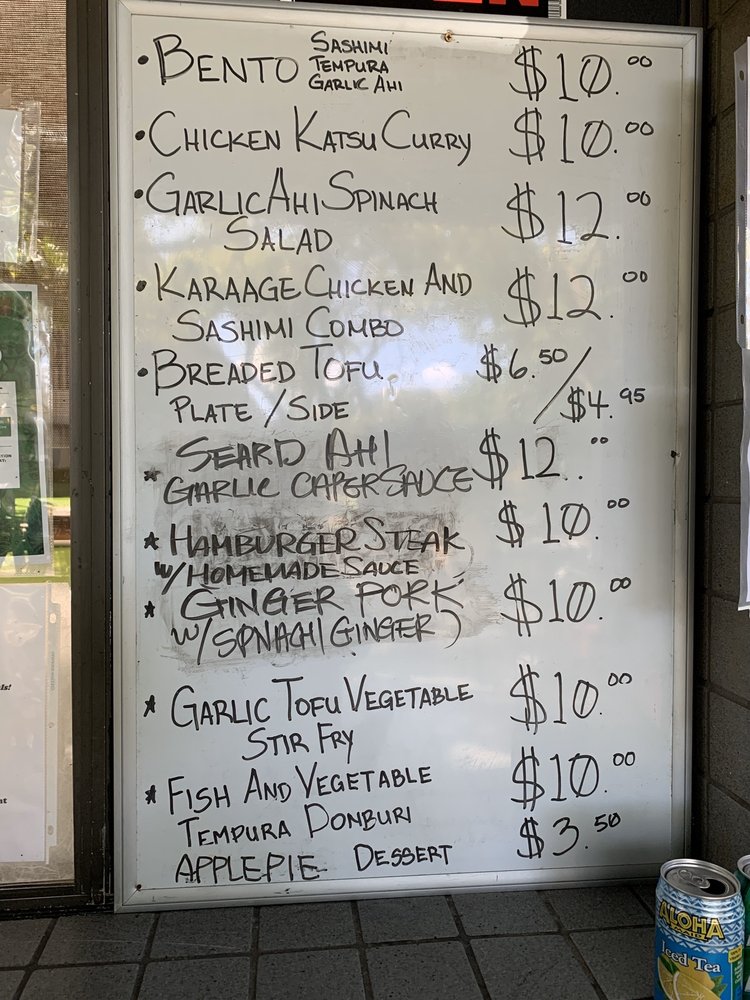 • BENTO SASHIMI TEMPURA GARLIC AHI $10.00
• CHICKEN KATSU CURRY $10.00
• GARLIC AHI SPINACH $12.00
SALAD
• KARAAGE CHICKEN AND $12.00
SASHIMI COMBO
• BREADED TOFU $6.50/
PLATE / SIDE $4.95
SEARD AHI $12.00
* GARLIC CAPER SAUCE
* HAMBURGER STEAK $10.00
W/HOMEMADE SAUCE
* GINGER PORK $10.00
W/SPNACH(GINGER)
* GARLIC TOFU VEGETABLE $10.00
STIR FRY
* FISH AND VEGETABLE $10.00
TEMPURA DONBURI
APPLEPIE DESSERT $3.50
ALOHA
MAID
Iced Tea